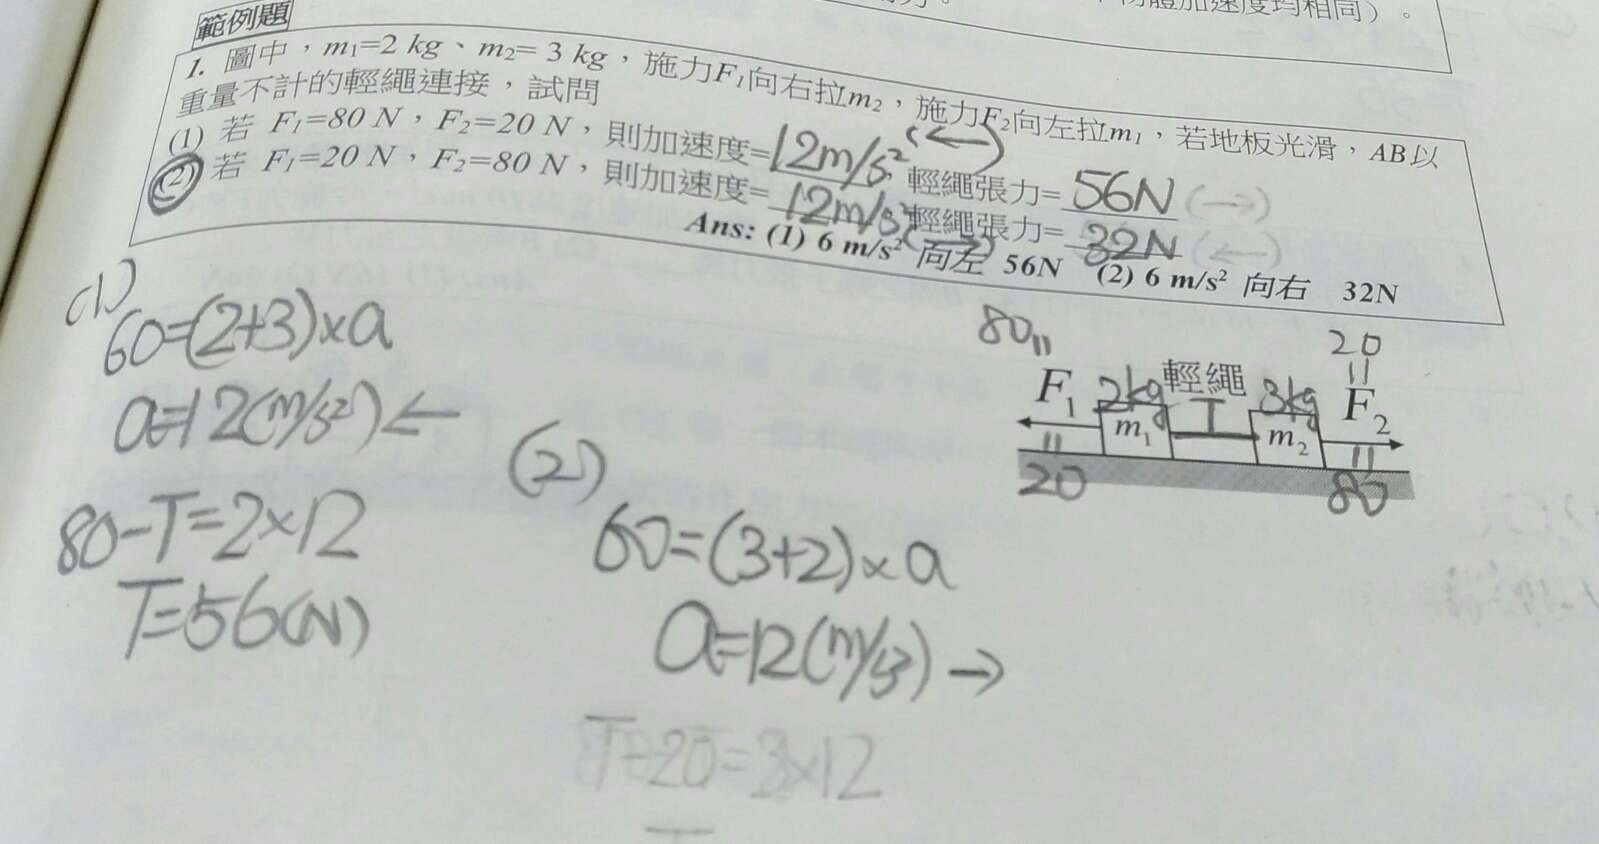 物體加速度均相同）。
範例題
1. 圖中，m₁=2 kg、m₂= 3 kg，施力F₁向右拉m₂，施力F₂向左拉m₁，若地板光滑，AB以
重量不計的輕繩連接，試問
(1) 若 F₁=80 N，F₂=20 N，則加速度=12m/s²(←)，輕繩張力= 56N (→)
(2) 若 F₁=20 N，F₂=80 N，則加速度= 12m/s²(→)，輕繩張力= 32N (←)
Ans: (1) 6 m/s² 向左 56N (2) 6 m/s² 向右 32N
(1)
60=(2+3)×a
a=12(m/s²)←
80-T=2×12
T=56(N)
(2)
60=(3+2)×a
a=12(m/s²)→
T-20=3×12
80 20
F₁ 2kg 輕繩 3kg F₂
m₁ T m₂
20 80